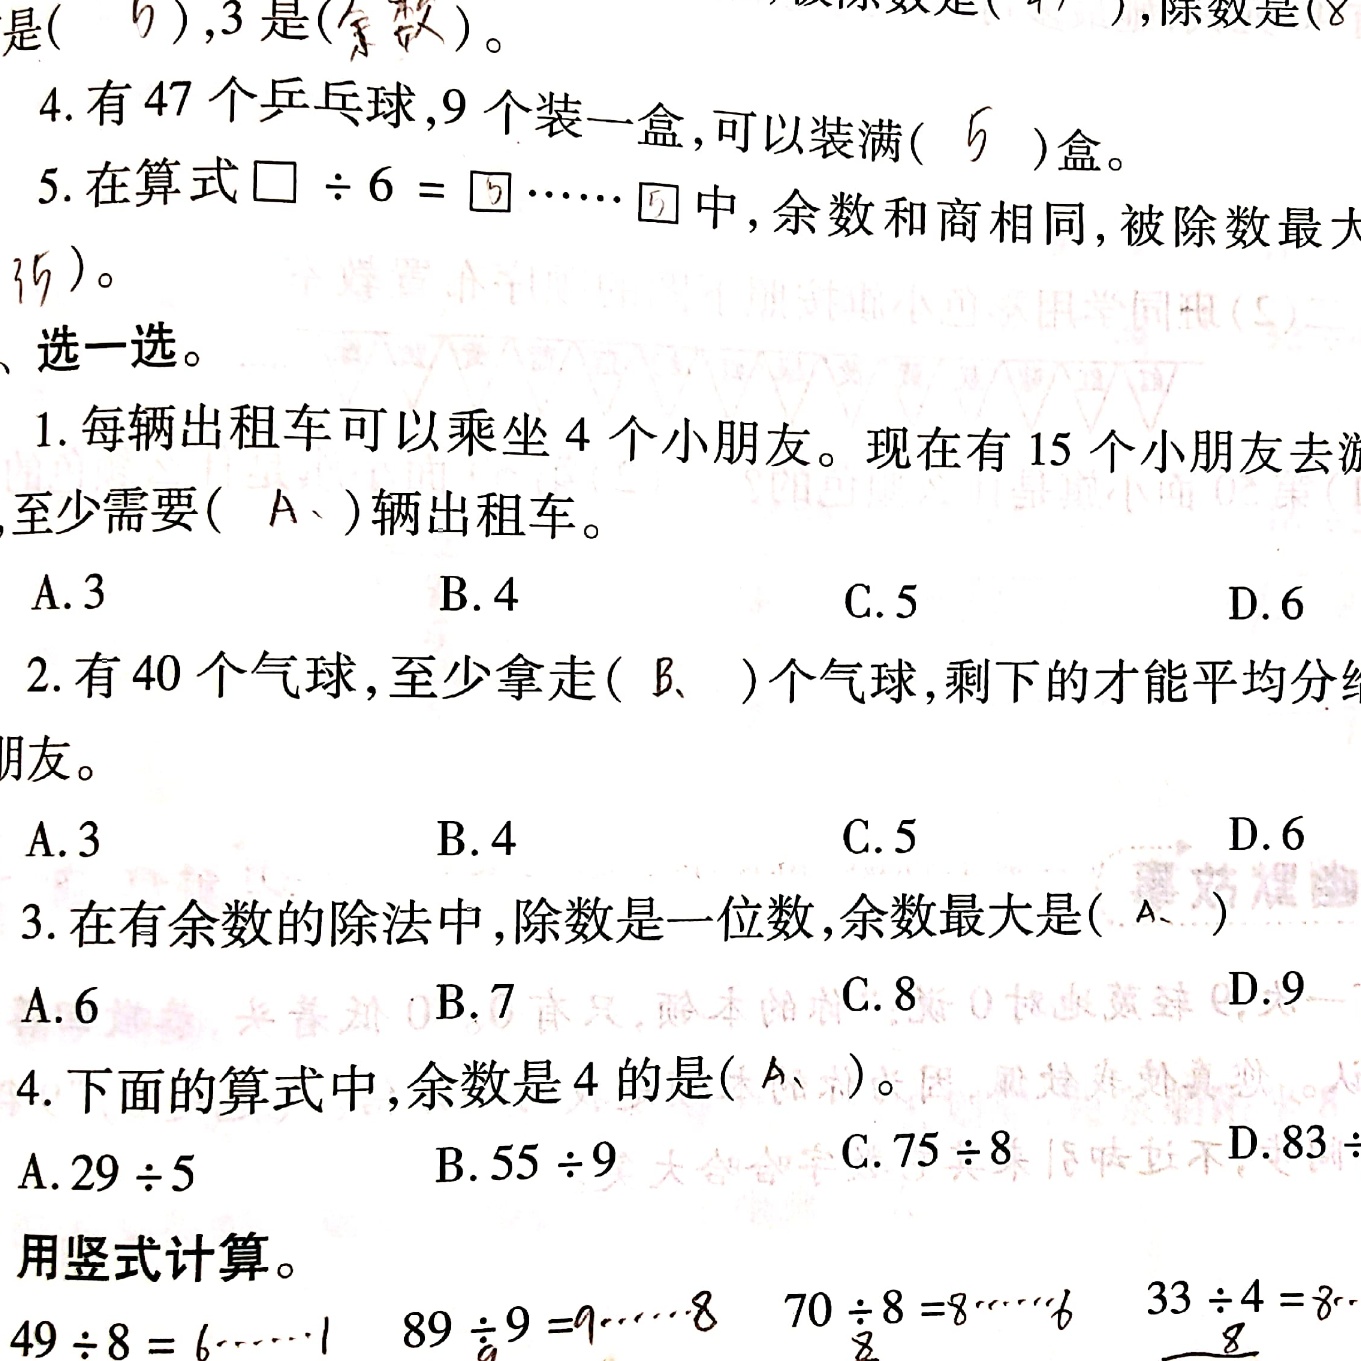 是( 5 ),3 是(余数)。
4. 有 47 个乒乓球,9 个装一盒,可以装满( 5 )盒。
5. 在算式 □ ÷ 6 = 5 …… 5 中,余数和商相同,被除数最大
35)。
、选一选。
1. 每辆出租车可以乘坐 4 个小朋友。现在有 15 个小朋友去游
,至少需要( A、 )辆出租车。
A. 3 B. 4 C. 5 D. 6
2. 有 40 个气球,至少拿走( B、 )个气球,剩下的才能平均分给
朋友。
A. 3 B. 4 C. 5 D. 6
3. 在有余数的除法中,除数是一位数,余数最大是( A、 )
A. 6 B. 7 C. 8 D. 9
4. 下面的算式中,余数是 4 的是( A、 )。
A. 29 ÷ 5 B. 55 ÷ 9 C. 75 ÷ 8 D. 83 ÷
用竖式计算。
49 ÷ 8 = 6……1 89 ÷ 9 = 9……8 70 ÷ 8 = 8……6 33 ÷ 4 = 8…
9 8 8